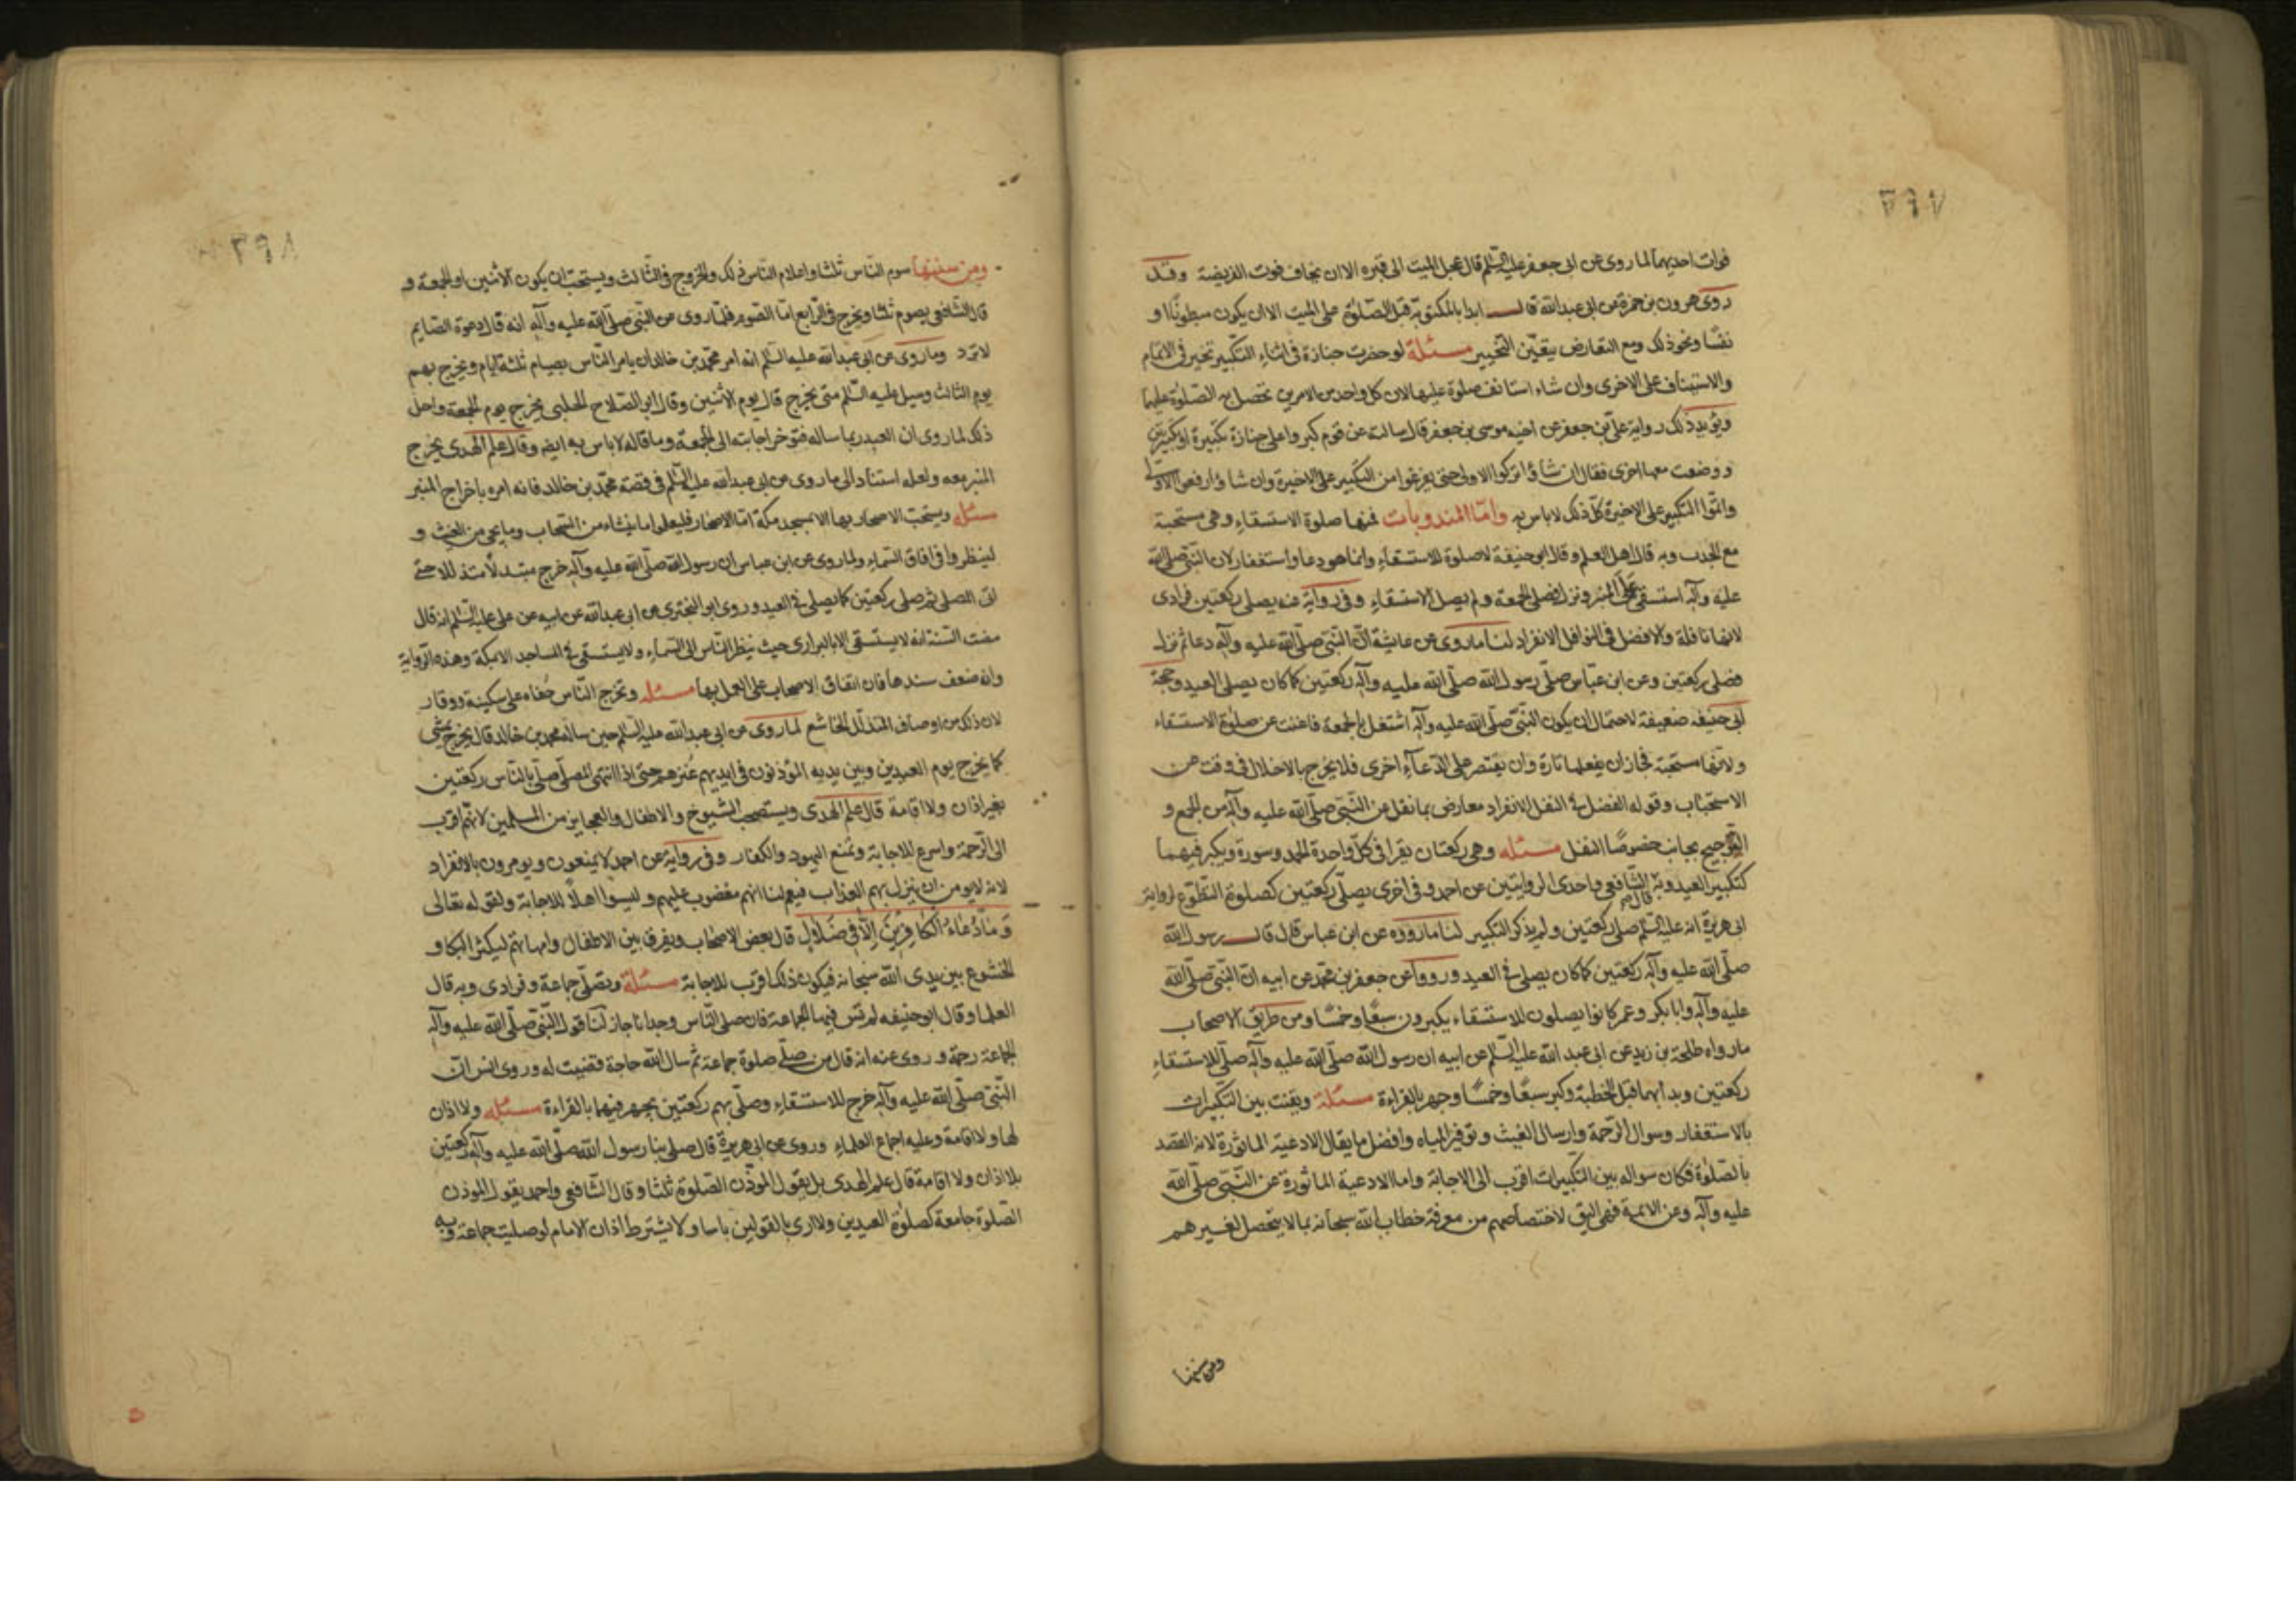 ٣٩٧
فوات احديهما لما روى عن ابى جعفر عليه السّلم قال عجل الميت الى قبره الا ان تخاف فوت الفريضة وقد
روى هرون بن حمزة عن ابى عبدالله قال ابدا بالمكتوبة قبل الصّلوة على الميت الا ان يكون مبطونًا او
نفسًا ونحو ذلك ومع التعارض يتعيّن التخيير مسئلة لو حضرت جنازة فى اثناء التكبير تخير فى الاتمام
والاستيناف على الاخرى وان شاء استانف صلوة عليها لان كل واحد من الامرين تحصل به الصّلوة عليهما
ويؤيد ذلك رواية علىّ بن جعفر عن اخيه موسى بن جعفر قال سالت عن قوم كبروا على جنازة تكبيرة او تكبيرتين
ووضعت معها اخرى فقال ان شاؤا تركوا الاولى حتى يفرغوا من التكبير على الاخيرة وان شاؤا رفعوا الاولى
واتمّوا التكبير على الاخيرة كلّ ذلك لا باس به وامّا المندوبات فمنها صلوة الاستسقاء وهى مستحبة
مع الجدب وبه قال اهل العلم وقال ابو حنيفة لا صلوة للاستسقاء وانما هو دعاء واستغفار لان النبّى صلّى الله
عليه وآله استسقى على المنبر ونزل فصلى الجمعة ولم يصل الاستسقاء وفى رواية عنه يصلى ركعتين فرادى
لانها نافلة والافضل فى النوافل الانفراد لنا ما روى عن عايشة انّ النبّى صلّى الله عليه وآله دعا ثم نزل
فصلى ركعتين وعن ابن عبّاس صلّى رسول الله صلّى الله عليه وآله ركعتين كما كان يصلى العيد وحجة
ابى حنيفة ضعيفة لاحتمال ان يكون النبّى صلّى الله عليه وآله اشتغل بالجمعة فاغنت عن صلوة الاستسقاء
ولانّها مستحبة فجاز ان يفعلها تارة وان يقتصر على الدّعاء اخرى فلا يخرج بالاخلال فى وقت عن
الاستحباب وقوله الفضل فى النفل الانفراد معارض بما نقل عن النّبى صلّى الله عليه وآله من الجمع و
التّرجيح بجانب خصوصًا النفل مسئله وهى ركعتان يقرا فى كلّ واحدة الحمد وسورة ويكبر فيهما
كتكبير العيد وبه قال الشّافعى واحدى الروايتين عن احمد وفى اخرى يصلّى ركعتين كصلوة التطّوع لرواية
ابى هريرة انه عليه السّلم صلى ركعتين ولم يذكر التكبير لنا ما رووه عن ابن عباس قال قال رسول الله
صلّى الله عليه وآله ركعتين كما كان يصلى فى العيد ورووا عن جعفر بن محمّد عن ابيه انّ النّبى صلّى الله
عليه وآله وابا بكر وعمر كانوا يصلون للاستسقاء يكبرون سبعًا وخمسًا ومن طريق الاصحاب
ما رواه طلحة بن زيد عن ابى عبد الله عليه السّلم عن ابيه ان رسول الله صلّى الله عليه وآله صلّى للاستسقاء
ركعتين وبدا بهما قبل الخطبة وكبر سبعًا وخمسًا وجهر بالقراءة مسئلة ويقنت بين التكبيرات
بالاستغفار وسوال الرّحمة وارسال الغيث وتوفير المياه وافضل ما يقال الادعية الماثورة لانه القصد
بالصّلوة فكان سواله بين التكبيرات اقرب الى الاجابة واما الادعية الماثورة عن النّبى صلّى الله
عليه وآله وعن الائمة فهى اليق لاختصاصهم من معرفة خطاب الله سبحانه بما لا يتحصل لغيرهم
ومن سننها
٣٩٨
ومن سننها صوم النّاس ثلثا واعلام النّاس ذلك والخروج فى الثّالث ويستحبّ ان يكون الاثنين او الجمعة و
قال الشّافعى يصوم ثلثا ويخرج فى الرّابع امّا الصّوم فلما روى عن النّبى صلّى الله عليه وآله انه قال دعوة الصّايم
لا تردّ وما روى عن ابى عبدالله عليه السّلم انه امر محمّد بن خالد ان يامر النّاس بصيام ثلثة ايام ويخرج بهم
يوم الثالث وسيل عليه السّلم متى يخرج قال يوم الاثنين وقال ابو الصّلاح الحلبى يخرج يوم الجمعة ولعل
ذلك لما روى ان العبد ربما ساله فتؤخر اجابته الى الجمعة وما قاله لا باس به ايضا وقال علم الهدى يخرج
المنبر معه ولعله استناد الى ما روى عن ابى عبدالله عليه السّلم فى قصة محمّد بن خالد فانه امره باخراج المنبر
مسئله ويستحبّ الاصحار بها الا بمسجد مكة امّا الاصحار فليعلموا ما ينشاء من السّحاب وما يجى من الغيث و
لينظروا فى افاق السّماء ولما روى عن ابن عباس ان رسول الله صلّى الله عليه وآله خرج مبتدلًا متذللا حتى
اتى المصلى ثم صلى ركعتين كما يصلى فى العيد وروى ابو البخترى عن ابى عبدالله عن ابيه عن على عليه السّلم انه قال
مضت السّنة انه لا يستسقى الا بالبرارى حيث ينظر النّاس الى السّماء ولا يستسقى فى المساجد الا بمكة وهذه الرّواية
وان ضعف سندها فان اتفاق الاصحاب على العمل بها مسئله ويخرج النّاس حفاه على سكينة ووقار
لان ذلك من اوصاف المتذلّل الخاشع لما روى عن ابى عبدالله عليه السّلم حين ساله محمد بن خالد قال يخرج يمشى
كما يخرج يوم العيدين وبين يديه المؤذنون فى ايديهم عنزهم حتى اذا انتهى المصلّى صلّى بالنّاس ركعتين
بغير اذان ولا اقامة قال علم الهدى ويستصحب الشيوخ والاطفال والعجايز من المسلمين لانّهم اقرب
الى الرّحمة واسرع للاجابة ويمنع اليهود والكفار وفى رواية عن احمد لا يمنعون ويومرون بالانفراد
لانه لا يومن ان ينزل بهم العذاب فيعم لنا انهم مغضوب عليهم وليسوا اهلًا للاجابة ولقوله تعالى
وَمَا دُعَاءُ الكَافِرِينَ اِلَّا فِى ضَلالٍ قال بعض الاصحاب ويفرق بين الاطفال وامهاتهم ليكثر البكاء و
الخشوع بين يدى الله سبحانه فيكون ذلك اقرب للاجابة مسئلة وتصلّى جماعة وفرادى وبه قال
العلما وقال ابو حنيفه لم تسن فيها الجماعة فان صلى النّاس وحدانا جاز لنا قول النّبى صلّى الله عليه وآله
الجماعة رحمة وروى عنه انه قال من صلّى صلوة جماعة ثم سال الله حاجة قضيت له وروى انس انّ
النّبى صلّى الله عليه وآله خرج للاستسقاء وصلّى بهم ركعتين يجهر فيهما بالقراءة مسئله ولا اذان
لها ولا اقامة وعليه اجماع العلماء وروى عن ابى هريرة قال صلى بنا رسول الله صلّى الله عليه وآله ركعتين
بلا اذان ولا اقامة قال علم الهدى بل يقول الموذّن الصّلوة ثلثا وقال الشّافعى واحمد يقول الموذن
الصّلوة جامعة كصلوة العيدين ولا ارى بالقولين باسا ولا يشترط اذان الامام لو صليت جماعة وبه